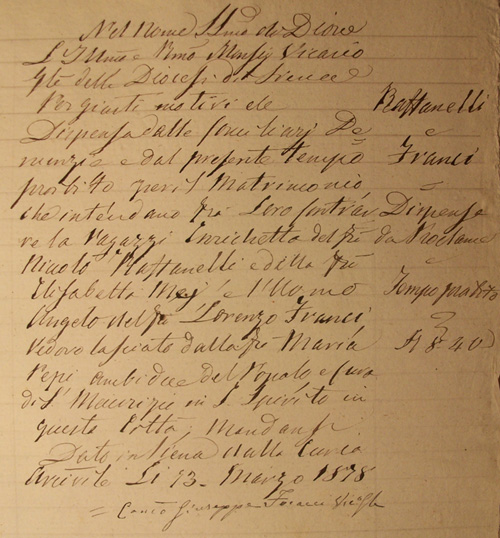 Nel Nome SSmo di Dio
L'Illmo e Rmo Monsig Vicario
Gle della Diocesi di
Per giusti motivi
Dispensa dalle Conciliari De
nunzie e dal presente tempo
proibito per il Matrimonio
che intendano frà Loro contrar
re la Ragazza Enrichetta del fù
Niccolò Raffanelli e della fù
Elisabetta Mej e l'Uomo
Angelo del fù Lorenzo Franci
Vedovo lasciato dalla fù Maria
Pepi ambidue del Popolo e Cura
di S. Maurizio in S. Spirito in
questa Città; mandans.
Dato in Siena dalla Curia
Arcivile Li 13. Marzo 1878
= Canco Giuseppe Franci Vic
Raffanelli
e
Franci
=
Dispensa
da Proclame
e
Tempo proibito
40